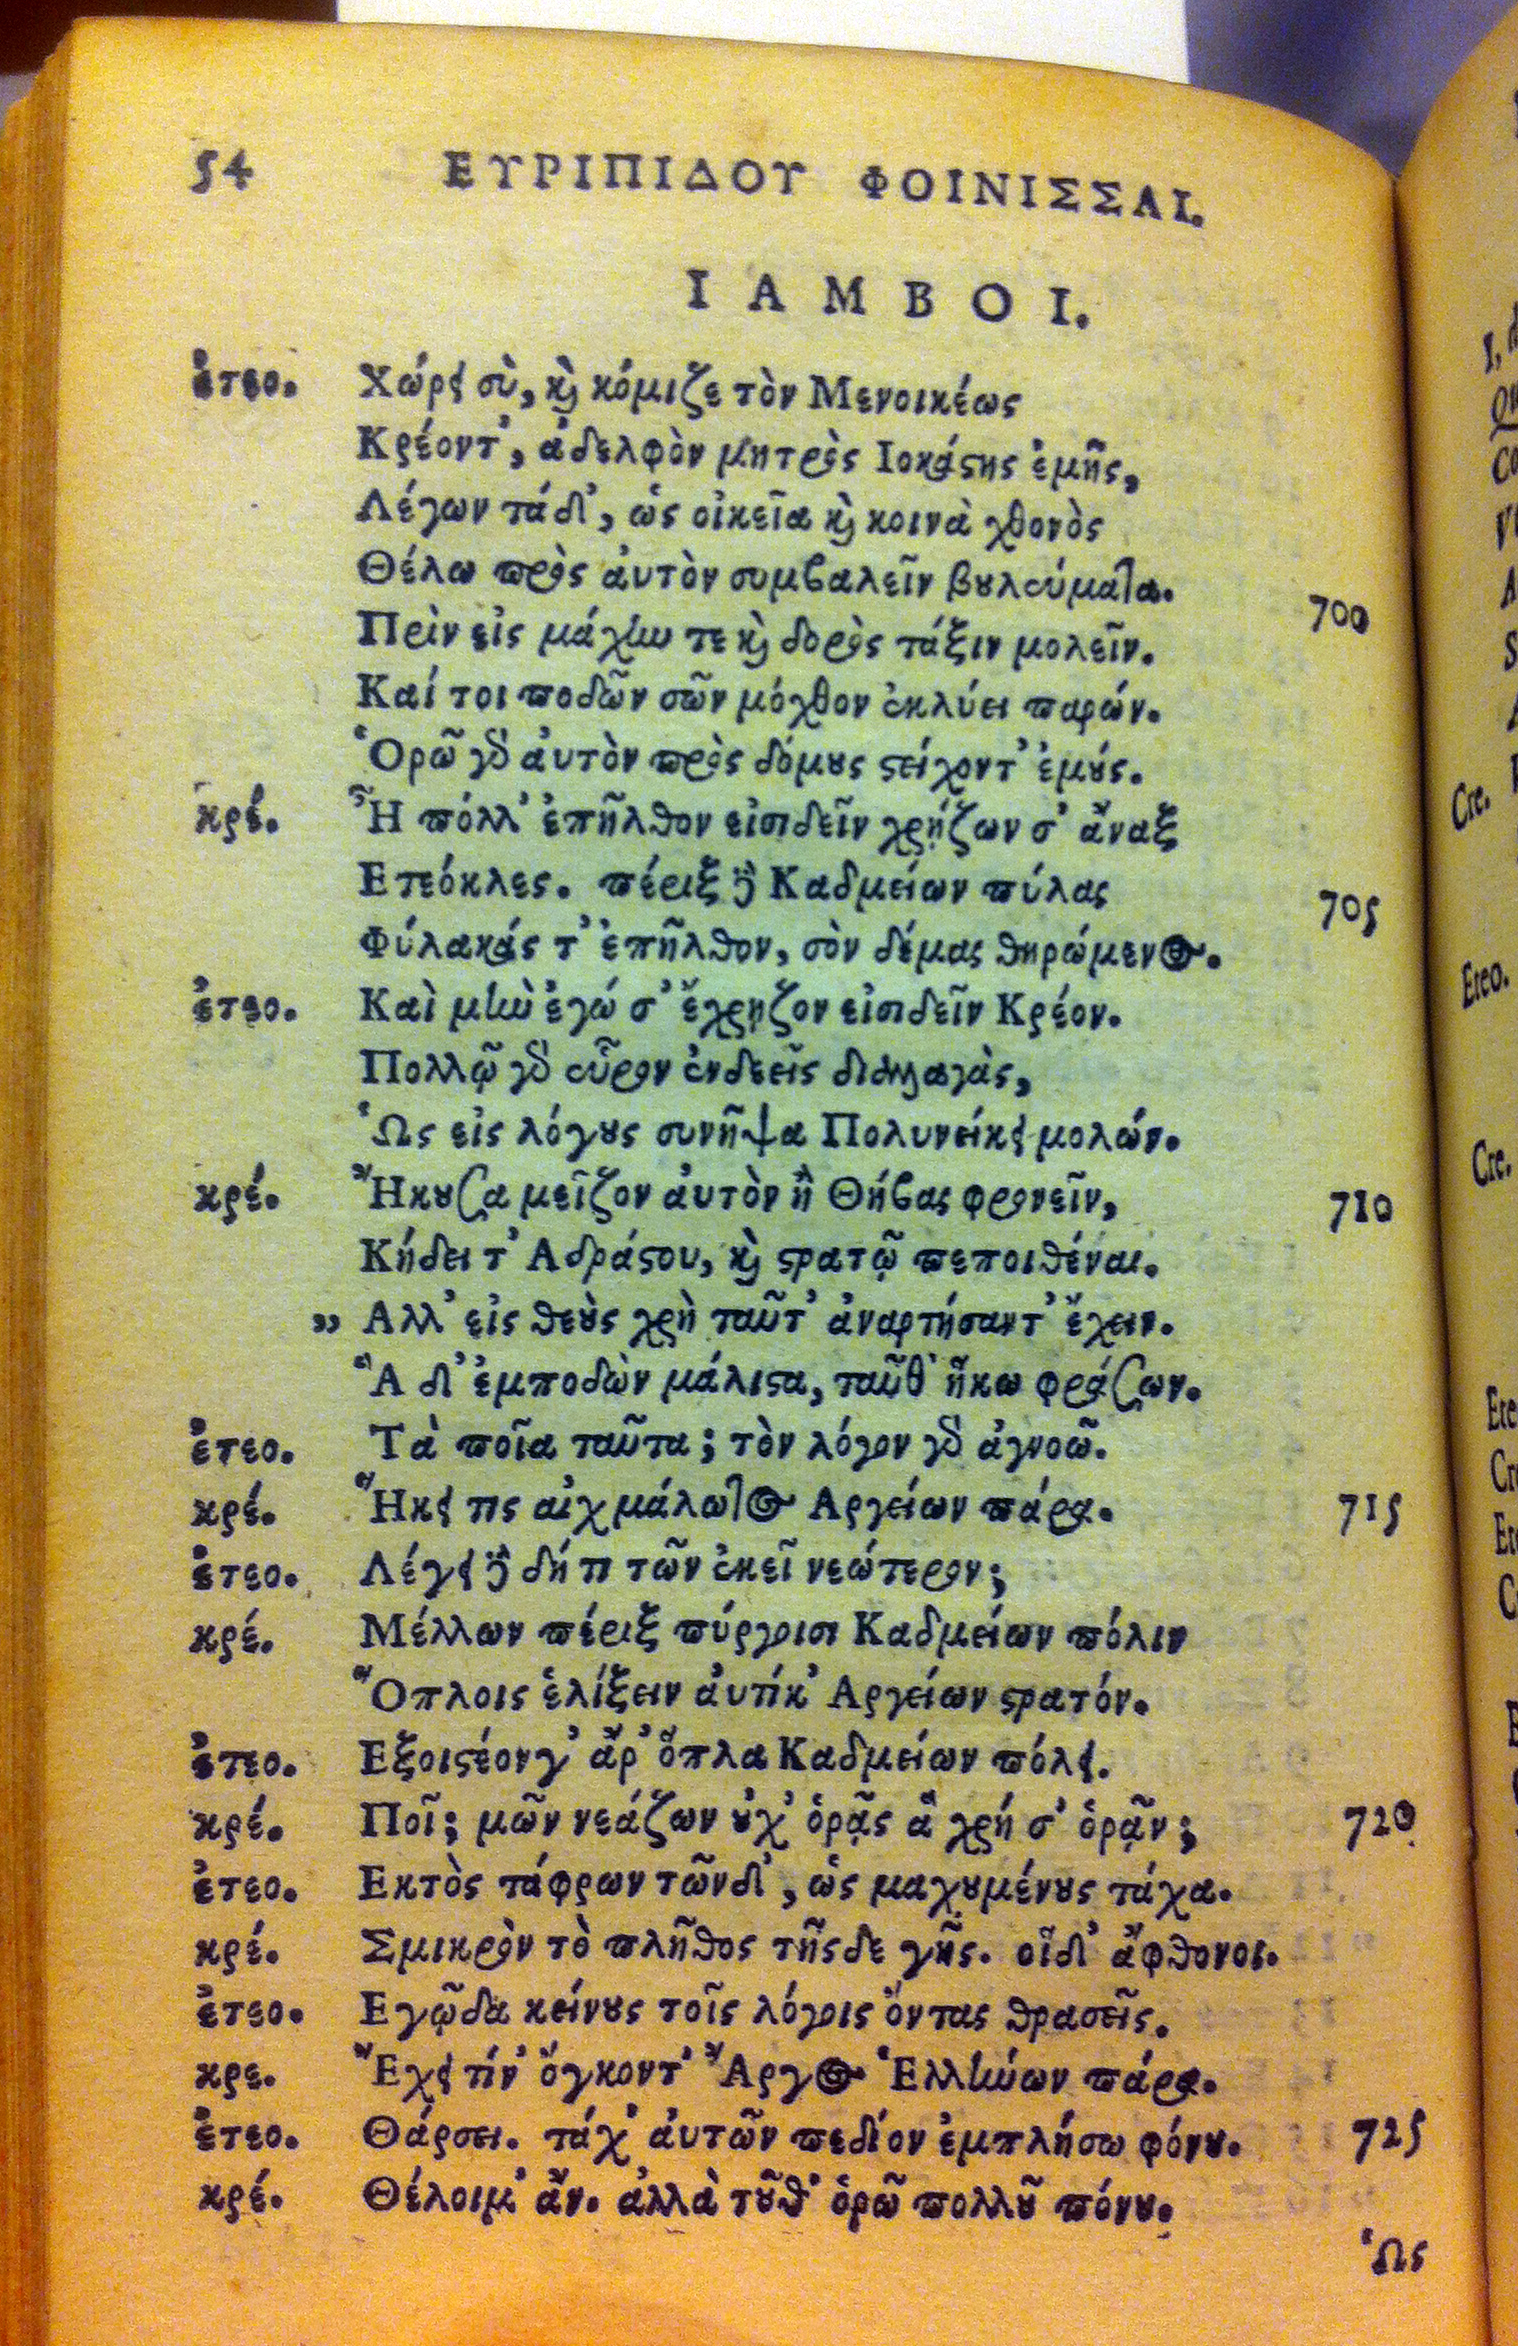 54 ΕΥΡΙΠΙΔΟΥ ΦΟΙΝΙΣΣΑΙ.
ΙΑΜΒΟΙ.
ἐτεο. Χώρει σὺ, καὶ κόμιζε τὸν Μενοικέως
Κρέοντ', ἀδελφὸν μητρὸς Ιοκάστης ἐμῆς,
Λέγων τάδ', ὡς οἰκεῖα καὶ κοινὰ χθονὸς
Θέλω πρὸς ἀυτὸν συμβαλεῖν βουλεύματα.
Πρὶν εἰς μάχην τε καὶ δορὸς τάξιν μολεῖν. 700
Καί τοι ποδῶν σῶν μόχθον ἐκλύει παρών.
Ὁρῶ γὰρ ἀυτὸν πρὸς δόμους στείχοντ' ἐμούς.
κρέ. Ἦ πόλλ' ἐπῆλθον εἰσιδεῖν χρῄζων σ' ἄναξ
Ετεόκλες. πέριξ δὲ Καδμείων πύλας
Φύλακάς τ' ἐπῆλθον, σὸν δέμας θηρώμενος. 705
ἐτεο. Καὶ μὴν ἐγώ σ' ἔχρῃζον εἰσιδεῖν Κρέον.
Πολλῷ γὰρ εὗρον ἐνδεεῖς διαλλαγὰς,
Ὡς εἰς λόγους συνῆψα Πολυνείκει μολών.
κρέ. Ἤκουσα μεῖζον ἀυτὸν ἢ Θήβας φρονεῖν,
Κήδει τ' Αδράστου, καὶ στρατῷ πεποιθέναι. 710
„ Αλλ' εἰς θεοὺς χρὴ ταῦτ' ἀναρτήσαντ' ἔχειν.
Ἃ δ' ἐμποδὼν μάλιστα, ταῦθ' ἥκω φράζων.
ἐτεο. Τὰ ποῖα ταῦτα; τὸν λόγον γὰρ ἀγνοῶ.
κρέ. Ἥκει τις αἰχμάλωτος Αργείων πάρα. 715
ἐτεο. Λέγει δὲ δή τι τῶν ἐκεῖ νεώτερον;
κρέ. Μέλλων πέριξ πύργοισι Καδμείων πόλιν
Ὅπλοις ἑλίξειν ἀυτίκ' Αργείων στρατόν.
ἐτεο. Εξοιστέον γ' ἄρ' ὅπλα Καδμείων πόλει.
κρέ. Ποῖ; μῶν νεάζων οὐχ' ὁρᾷς ἃ χρή σ' ὁρᾷν; 720
ἐτεο. Εκτὸς τάφρων τῶνδ', ὡς μαχουμένους τάχα.
κρέ. Σμικρὸν τὸ πλῆθος τῆσδε γῆς. οἵδ' ἄφθονοι.
ἐτεο. Εγᾦδα κείνους τοῖς λόγοις ὄντας θρασεῖς.
κρε. Ἔχει τίν' ὄγκον τ' Ἄργος Ἑλλήνων πάρα.
ἐτεο. Θάρσει. τάχ' ἀυτῶν πεδίον ἐμπλήσω φόνου. 725
κρέ. Θέλοιμ' ἄν. ἀλλὰ τοῦθ' ὁρῶ πολλοῦ πόνου.
Ὡς